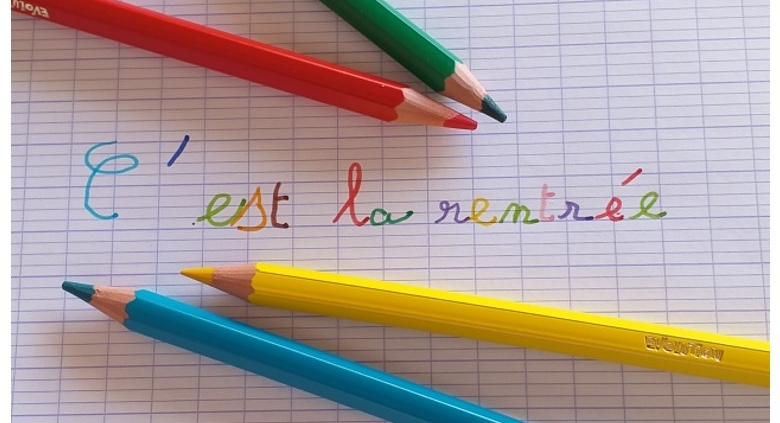 Evolu
C'est la rentrée
Evolution